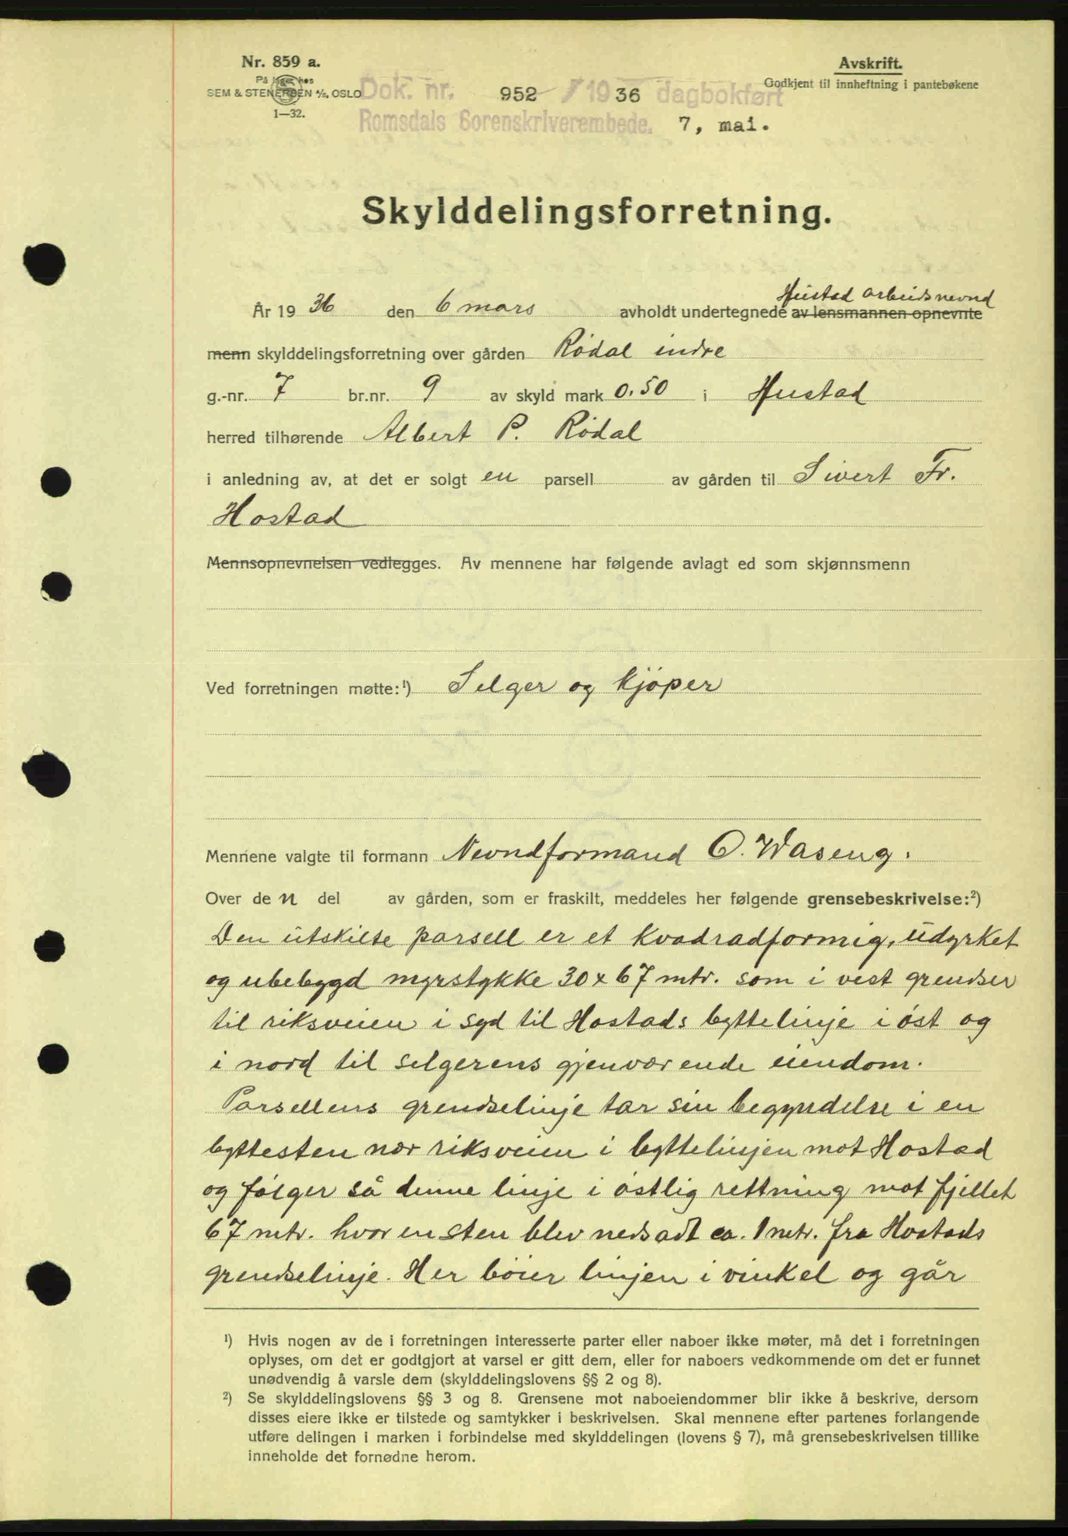 Nr. 859 a.
På lager hos
SEM & STENERSEN A/S, OSLO
1—32.
Dok. nr. 952 / 1936 dagbokført
Romsdals Sorenskriverembede. 7, mai.
Avskrift.
Godkjent til innheftning i pantebøkene
Skylddelingsforretning.
Hustad arbeidsnevnd
År 1936 den 6 mars avholdt undertegnede av lensmannen opnevnte
menn skylddelingsforretning over gården Rödal indre
g.-nr. 7 br.nr. 9 av skyld mark 0.50 i Hustad
herred tilhørende Albert P. Rödal
i anledning av, at det er solgt en parsell av gården til Sivert Fr.
Hostad
Mennsopnevnelsen vedlegges. Av mennene har følgende avlagt ed som skjønnsmenn
Ved forretningen møtte:¹) Selger og kjöper
Mennene valgte til formann Nevndformand O. Waseng.
Over den del av gården, som er fraskilt, meddeles her følgende grensebeskrivelse:²)
Den utskilte parsell er et kvadradformig, udyrket
og ubebygd myrstykke 30 x 67 mtr. som i vest grendser
til riksveien i syd til Hostads byttelinje i öst og
i nord til selgerens gjenværende eiendom.
Parsellens grendselinje tar sin begyndelse i en
byttesten nær riksveien i byttelinjen mot Hostad
og fölger så denne linje i östlig rettning mot fjellet
67 mtr. hvor en sten blev nedsadt ca. 1 mtr. fra Hostads
grendselinje. Her böier linjen i vinkel og går
¹) Hvis nogen av de i forretningen interesserte parter eller naboer ikke møter, må det i forretningen
oplyses, om det er godtgjort at varsel er gitt dem, eller for naboers vedkommende om det er funnet
unødvendig å varsle dem (skylddelingslovens §§ 2 og 8).
²) Se skylddelingslovens §§ 3 og 8. Grensene mot naboeiendommer blir ikke å beskrive, dersom
disses eiere ikke er tilstede og samtykker i beskrivelsen. Skal mennene efter partenes forlangende
utføre delingen i marken i forbindelse med skylddelingen (lovens § 7), må grensebeskrivelsen tillike
inneholde det fornødne herom.